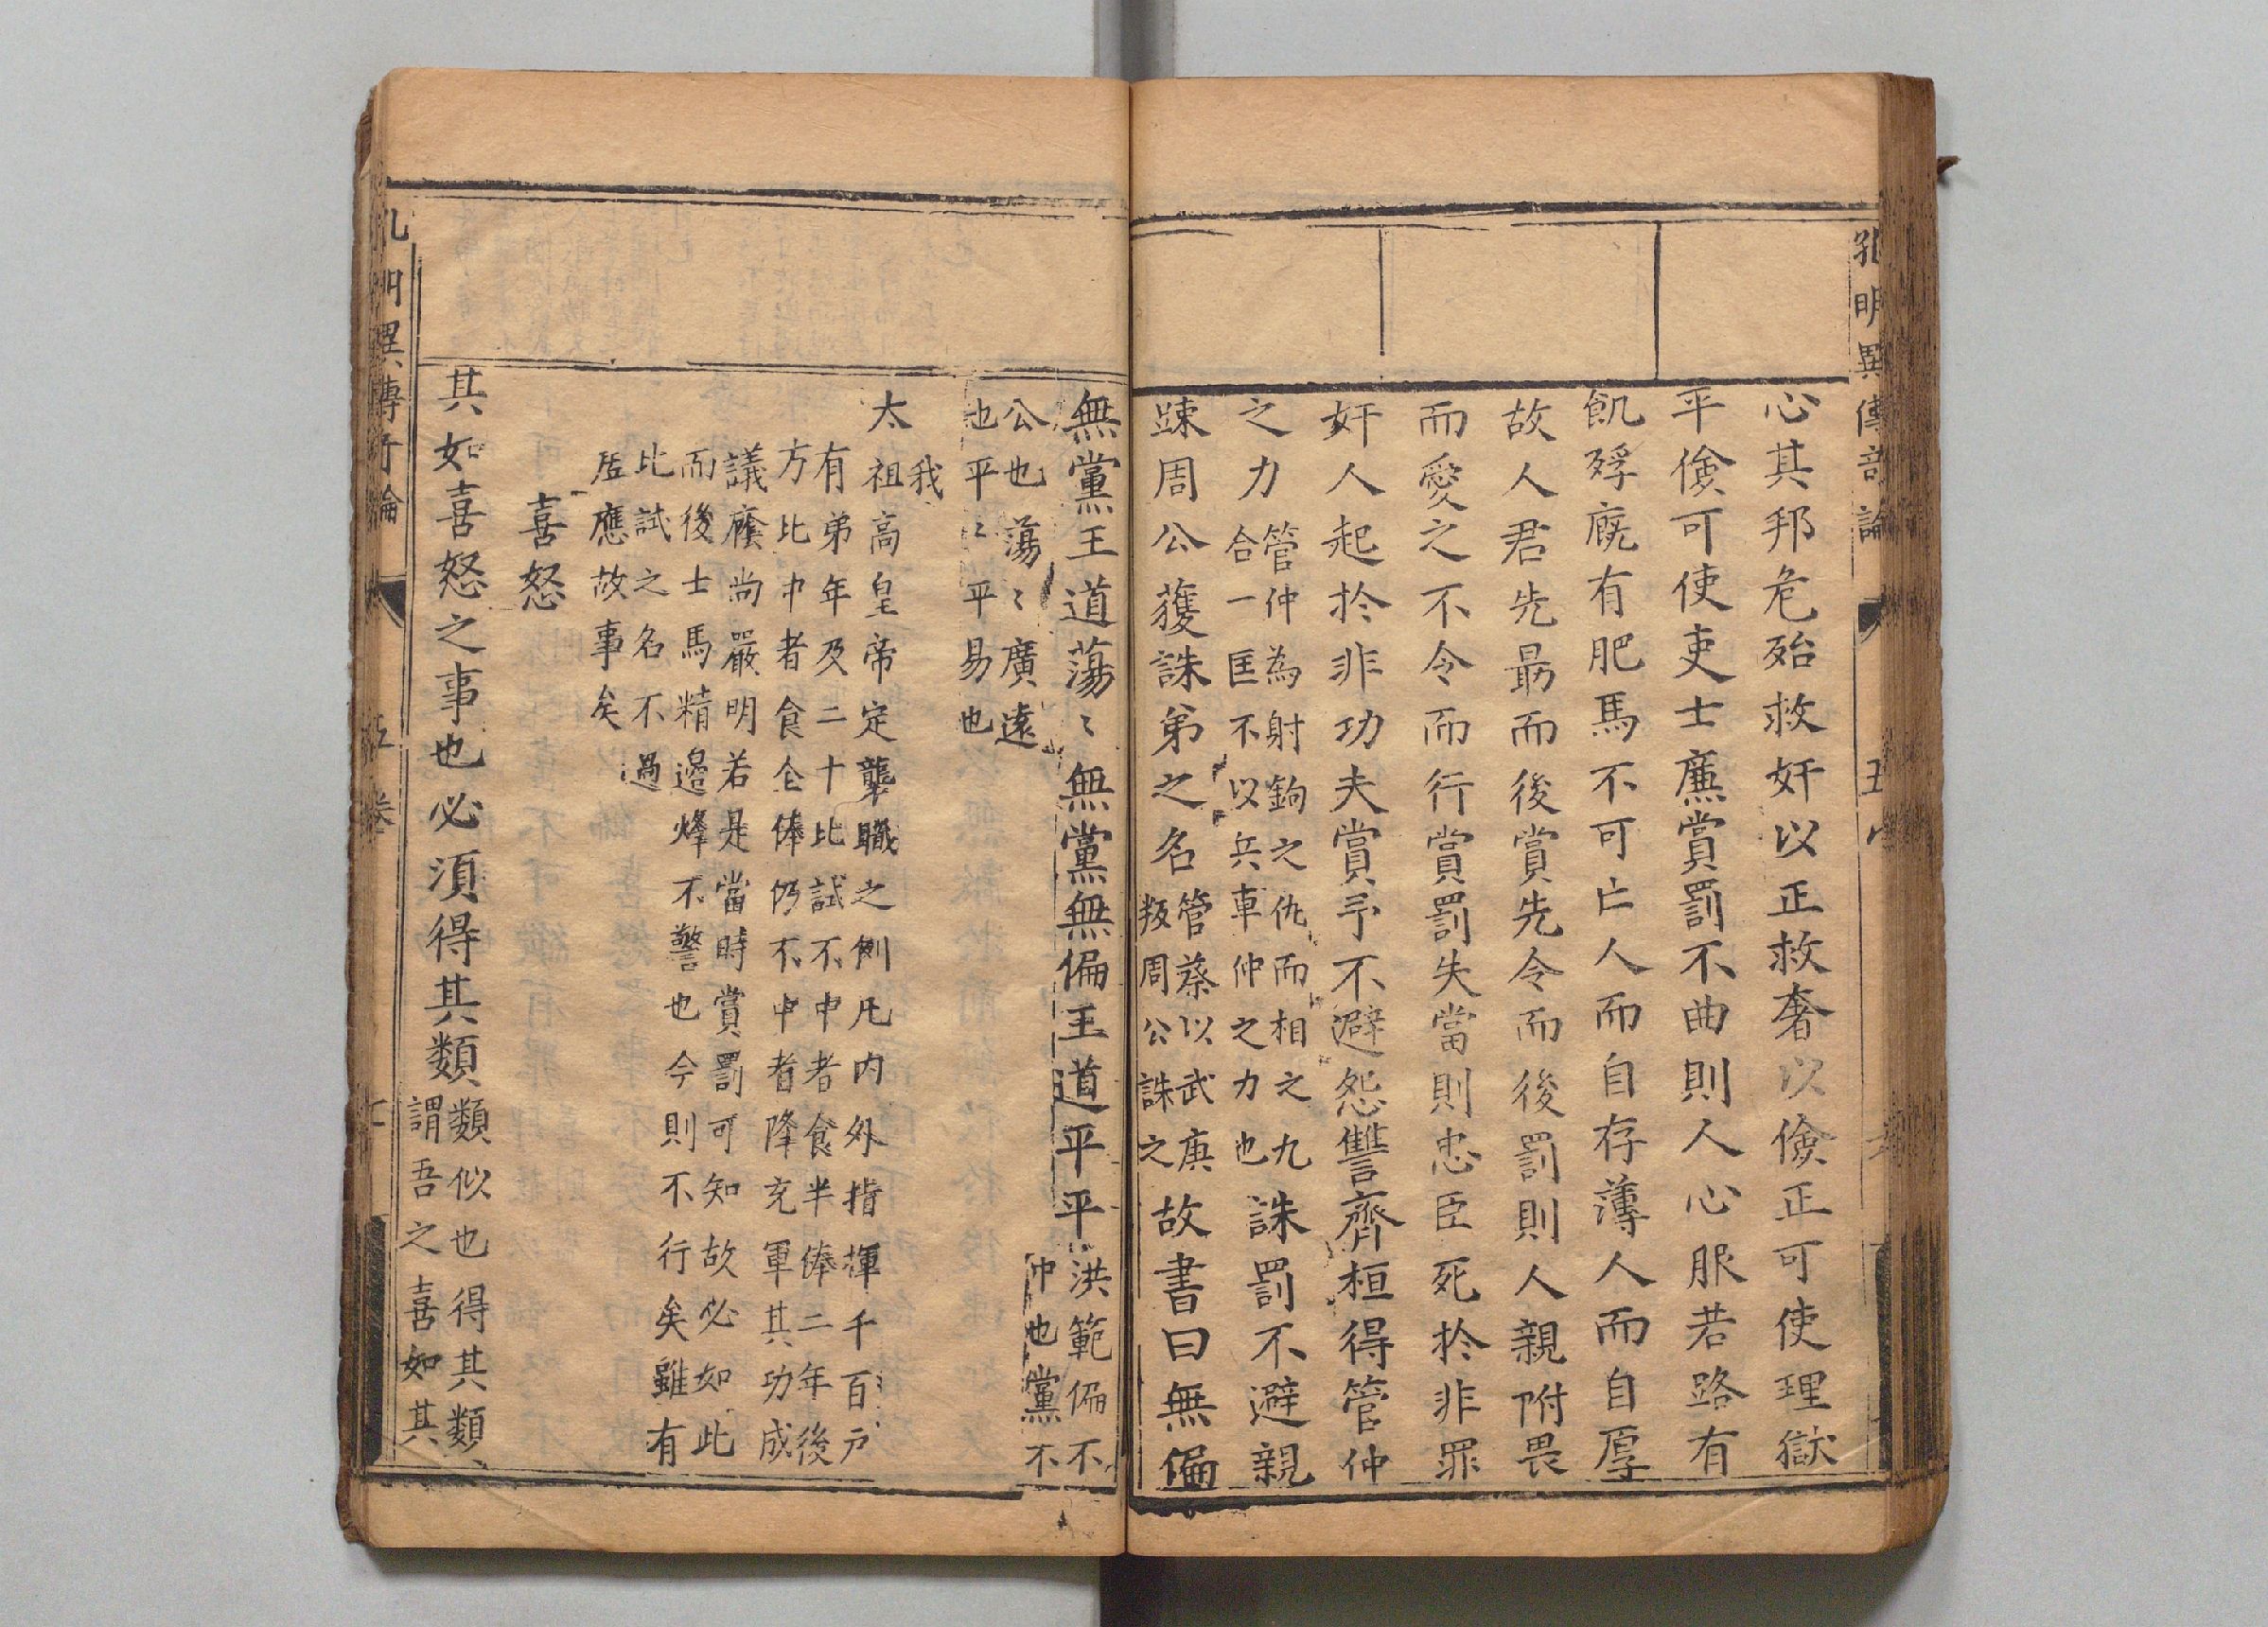 孔明異傳
心其邦危殆救奸以正救奢以儉正可使理獄
平儉可使吏士廉賞罰不曲則人心服若路有
飢殍廐有肥馬不可亡人而自存薄人而自厚
故人君先募而後賞先令而後罰則人親附畏
而愛之不令而行賞罰失當則忠臣死於非罪
奸人起於非功夫賞予不避怨讐齊桓得管仲
之力管仲為射鉤之仇而相之九
合一匡不以兵車仲之力也誅罰不避親
踈周公獲誅弟之名管蔡以武庚
叛周公誅之故書曰無偏
無黨王道蕩〻無黨無偏王道平平洪範偏不
中也黨不
公也蕩〻廣遠
也平〻平易也
我
太祖高皇帝定襲職之例凡内外指揮千百戶
有弟年及二十比試不中者食半俸二年後
方比中者食仝俸仍不中者降充軍其功成
議廕尚嚴明若是當時賞罰可知故必如此
而後士馬精邉烽不警也今則不行矣雖有
比試之名不過
居應故事矣
喜怒
其如喜怒之事也必湏得其類類似也得其類
謂吾之喜如其
異傳 五 卷